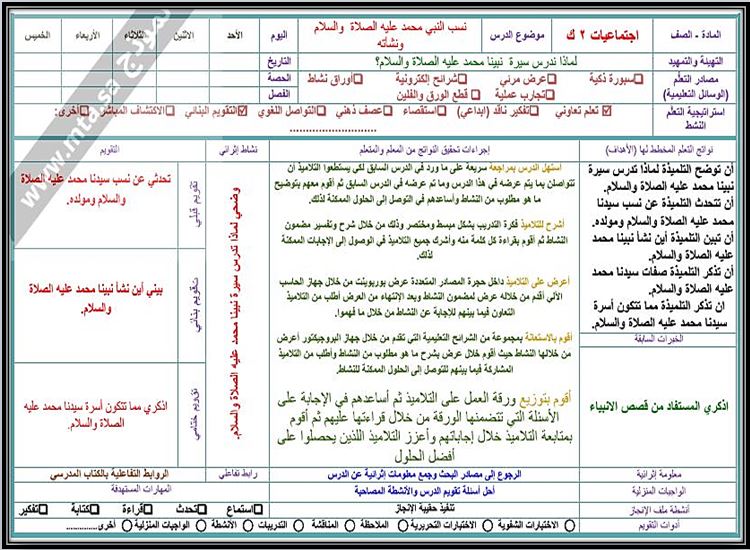 المادة - الصف
اجتماعيات ٢ ك
موضوع الدرس
نسب النبي محمد عليه الصلاة والسلام
ونشأته
اليوم
الأحد
الاثنين
الثلاثاء
الأربعاء
الخميس
التهيئة والتمهيد
لماذا ندرس سيرة نبينا محمد عليه الصلاة والسلام؟
التاريخ
مصادر التعلم
(الوسائل التعليمية)
سبورة ذكية
عرض مرئي
شرائح إلكترونية
أوراق نشاط
تجارب عملية
قطع الورق والفلين
الحصة
الفصل
استراتيجية التعلم
النشط
تعلم تعاوني
تفكير ناقد (ابداعي)
استقصاء
عصف ذهني
التواصل اللغوي
التقويم البنائي
الاكتشاف المباشر
أخرى:
............................
نواتج التعلم المخطط لها (الأهداف)
إجراءات تحقيق النواتج من المعلم والمتعلم
نشاط إثرائي
التقويم
أن توضح التلميذة لماذا تدرس سيرة
نبينا محمد عليه الصلاة والسلام.
أن تتحدث التلميذة عن نسب سيدنا
محمد عليه الصلاة والسلام ومولده.
أن تبين التلميذة أين نشأ نبينا محمد
عليه الصلاة والسلام.
أن تذكر التلميذة صفات سيدنا محمد
عليه الصلاة والسلام.
ان تذكر التلميذة مما تتكون أسرة
سيدنا محمد عليه الصلاة والسلام.
الخبرات السابقة
اذكري المستفاد من قصص الانبياء
استهل الدرس بمراجعة سريعة على ما ورد في الدرس السابق لكي يستطعوا التلاميذ ان
تتواصلن بما يتم عرضه في هذا الدرس وما تم عرضه في الدرس السابق ثم أقوم معهم بتوضيح
ما هو مطلوب من النشاط وأساعدهم في التوصل إلى الحلول الممكنة لذلك.
أشرح للتلاميذ فكرة التدريب بشكل مبسط ومختصر وذلك من خلال شرح وتفسير مضمون
النشاط ثم أقوم بقراءة كل كلمة منه وأشرك جميع التلاميذ في الوصول إلى الإجابات الممكنة
لذلك.
أعرض على التلاميذ داخل حجرة المصادر المتعددة عرض بوربوينت من خلال جهاز الحاسب
الآلي أقدم من خلاله عرض لمضمون النشاط وبعد الإنتهاء من العرض أطلب من التلاميذ
التعاون فيما بينهم للإجابة عن النشاط من خلال ما فهموا.
أقوم بالاستعانة بمجموعة من الشرائح التعليمية التي تقدم من خلال جهاز البروجيكتور أعرض
من خلالها النشاط حيث أقوم خلال عرض بشرح ما هو مطلوب من النشاط وأطلب من التلاميذ
المشاركة فيما بينهم للتوصل إلى الحلول الممكنة للنشاط
أقوم بتوزيع ورقة العمل على التلاميذ ثم أساعدهم في الإجابة على
الأسئلة التي تتضمنها الورقة من خلال قراءتها عليهم ثم أقوم
بمتابعة التلاميذ خلال إجاباتهم وأعزز التلاميذ اللذين يحصلوا على
أفضل الحلول
وضحي لماذا تدرس سيرة نبينا محمد عليه الصلاة والسلام.
تقويم قبلي
تحدثي عن نسب سيدنا محمد عليه الصلاة
والسلام ومولده.
تقويم بنائي
بيني أين نشأ نبينا محمد عليه الصلاة
والسلام.
تقويم ختامي
اذكري مما تتكون أسرة سيدنا محمد عليه
الصلاة والسلام.
معلومة إثرائية
الرجوع إلى مصادر البحث وجمع معلومات إثرائية عن الدرس
رابط تفاعلي
الروابط التفاعلية بالكتاب المدرسي
الواجبات المنزلية
أحل أسئلة تقويم الدرس والأنشطة المصاحبة
المهارات المستهدفة
أنشطة ملف الإنجاز
تنفيذ حقيبة الإنجاز
استماع
تحدث
قراءة
كتابة
تفكير
أدوات التقويم
الاختبارات الشفوية
الاختبارات التحريرية
الملاحظة
المناقشة
التدريبات
الأنشطة
الواجبات المنزلية
أخرى..............
www.mta.sa